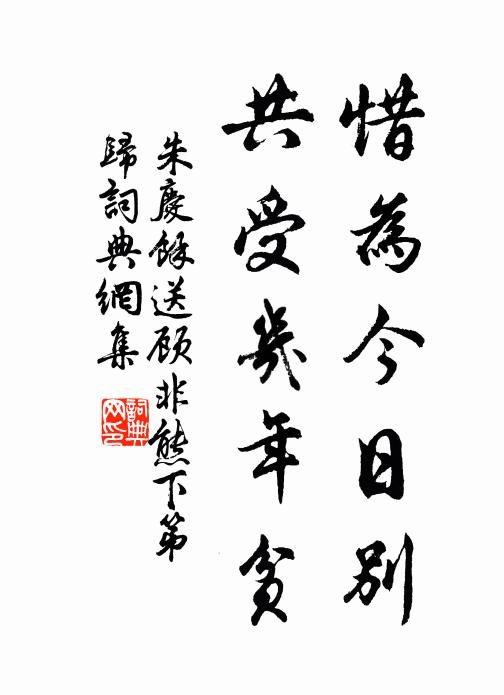 惜為今日別
共受幾年貧
朱慶餘送顧非熊下第
歸詞典網集
詞典
网印